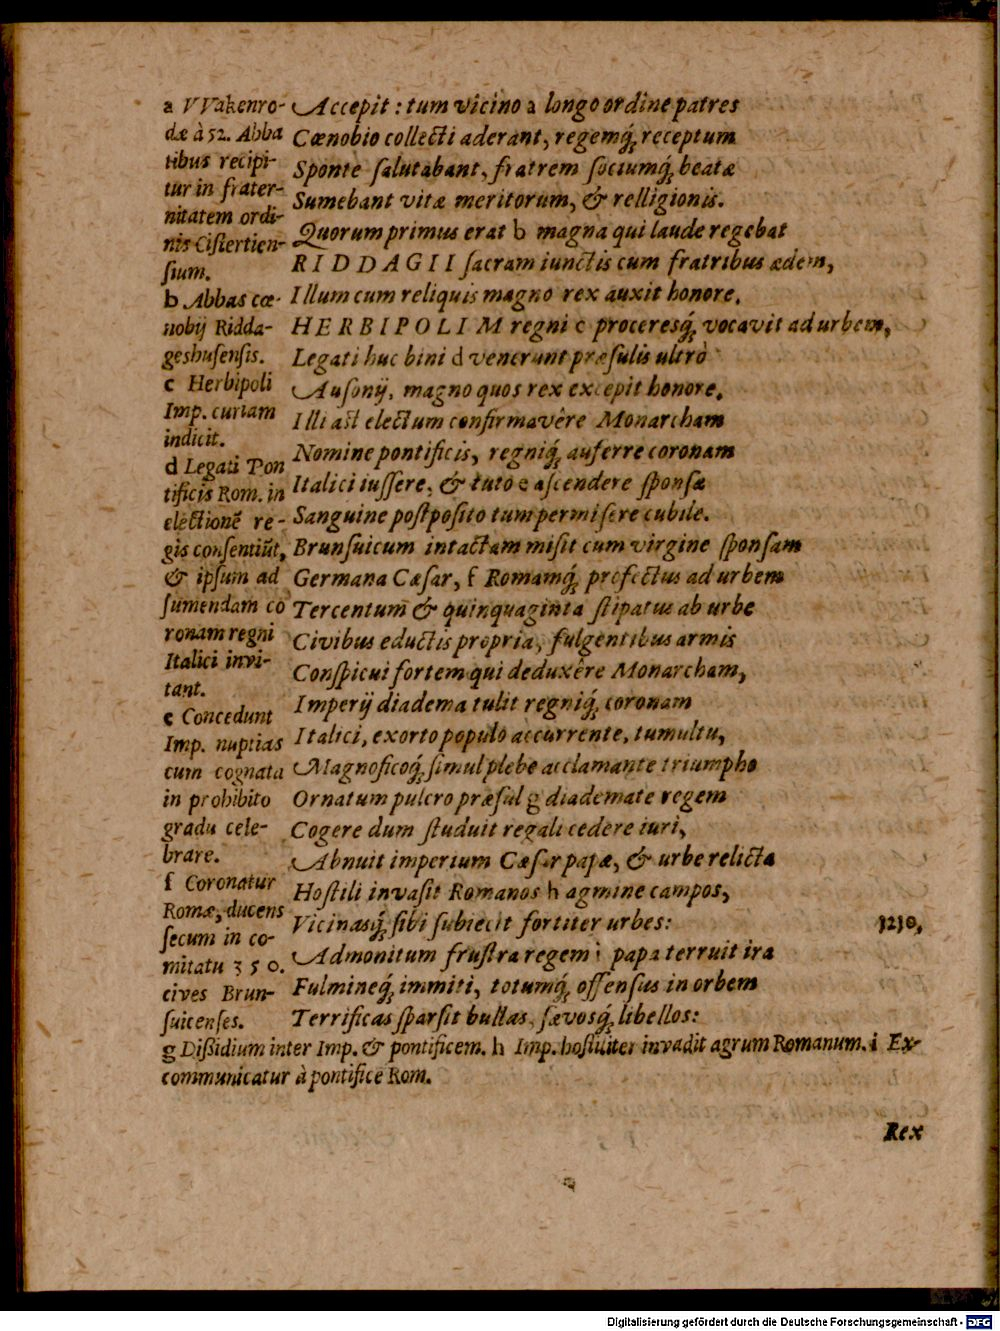 a VVakenro-
dæ à 52. Abba
tibus recipi-
tur in frater-
nitatem ordi-
nis Cistertien-
sium.
b Abbas cœ-
nobij Ridda-
geshusensis.
c Herbipoli
Imp. curiam
indicit.
d Legati Pon
tificis Rom. in
electionē re-
gis consentiūt,
& ipsum ad
sumendam co
ronam regni
Italici invi-
tant.
e Concedunt
Imp. nuptias
cum cognata
in prohibito
gradu cele-
brare.
f Coronatur
Romæ, ducens
secum in co-
mitatu 350.
cives Brun-
suicenses.
Accepit: tum vicino a longo ordine patres
Cœnobio collecti aderant, regemq́; receptum
Sponte salutabant, fratrem sociumq́; beatæ
Sumebant vitæ meritorum, & relligionis.
Quorum primus erat b magna qui laude regebat
RIDDAGII sacram iunctis cum fratribus ædem,
Illum cum reliquis magno rex auxit honore.
HERBIPOLIM regni c proceresq́; vocavit ad urbem,
Legati huc bini d venerunt præsulis ultrò
Ausonij, magno quos rex excepit honore.
Illi ast electum confirmavêre Monarcham
Nomine pontificis, regniq́; auferre coronam
Italici iussere, & tuto e ascendere sponsæ
Sanguine postposito tum permisere cubile.
Brunsuicum intactam misit cum virgine sponsam
Germana Cæsar, f Romamq́; profectus ad urbem
Tercentum & quinquaginta stipatus ab urbe
Civibus eductis propria, fulgentibus armis
Conspicui fortem qui deduxêre Monarcham,
Imperij diadema tulit regniq́; coronam
Italici, exorto populo accurrente, tumultu,
Magnoficoq́; simul plebe acclamante triumpho
Ornatum pulcro præsul g diademate regem
Cogere dum studuit regali cedere iuri,
Abnuit imperium Cæsar papæ, & urbe relicta
Hostili invasit Romanos h agmine campos,
Vicinasq́; sibi subiecit fortiter urbes: 1210,
Admonitum frustra regem i papa terruit ira
Fulmineq́; immiti, totumq́; offensus in orbem
Terrificas sparsit bullas, sævosq́; libellos:
g Dissidium inter Imp. & pontificem. h Imp. hostiliter invadit agrum Romanum. i Ex-
communicatur à pontifice Rom.
Rex
Digitalisierung gefördert durch die Deutsche Forschungsgemeinschaft - DFG